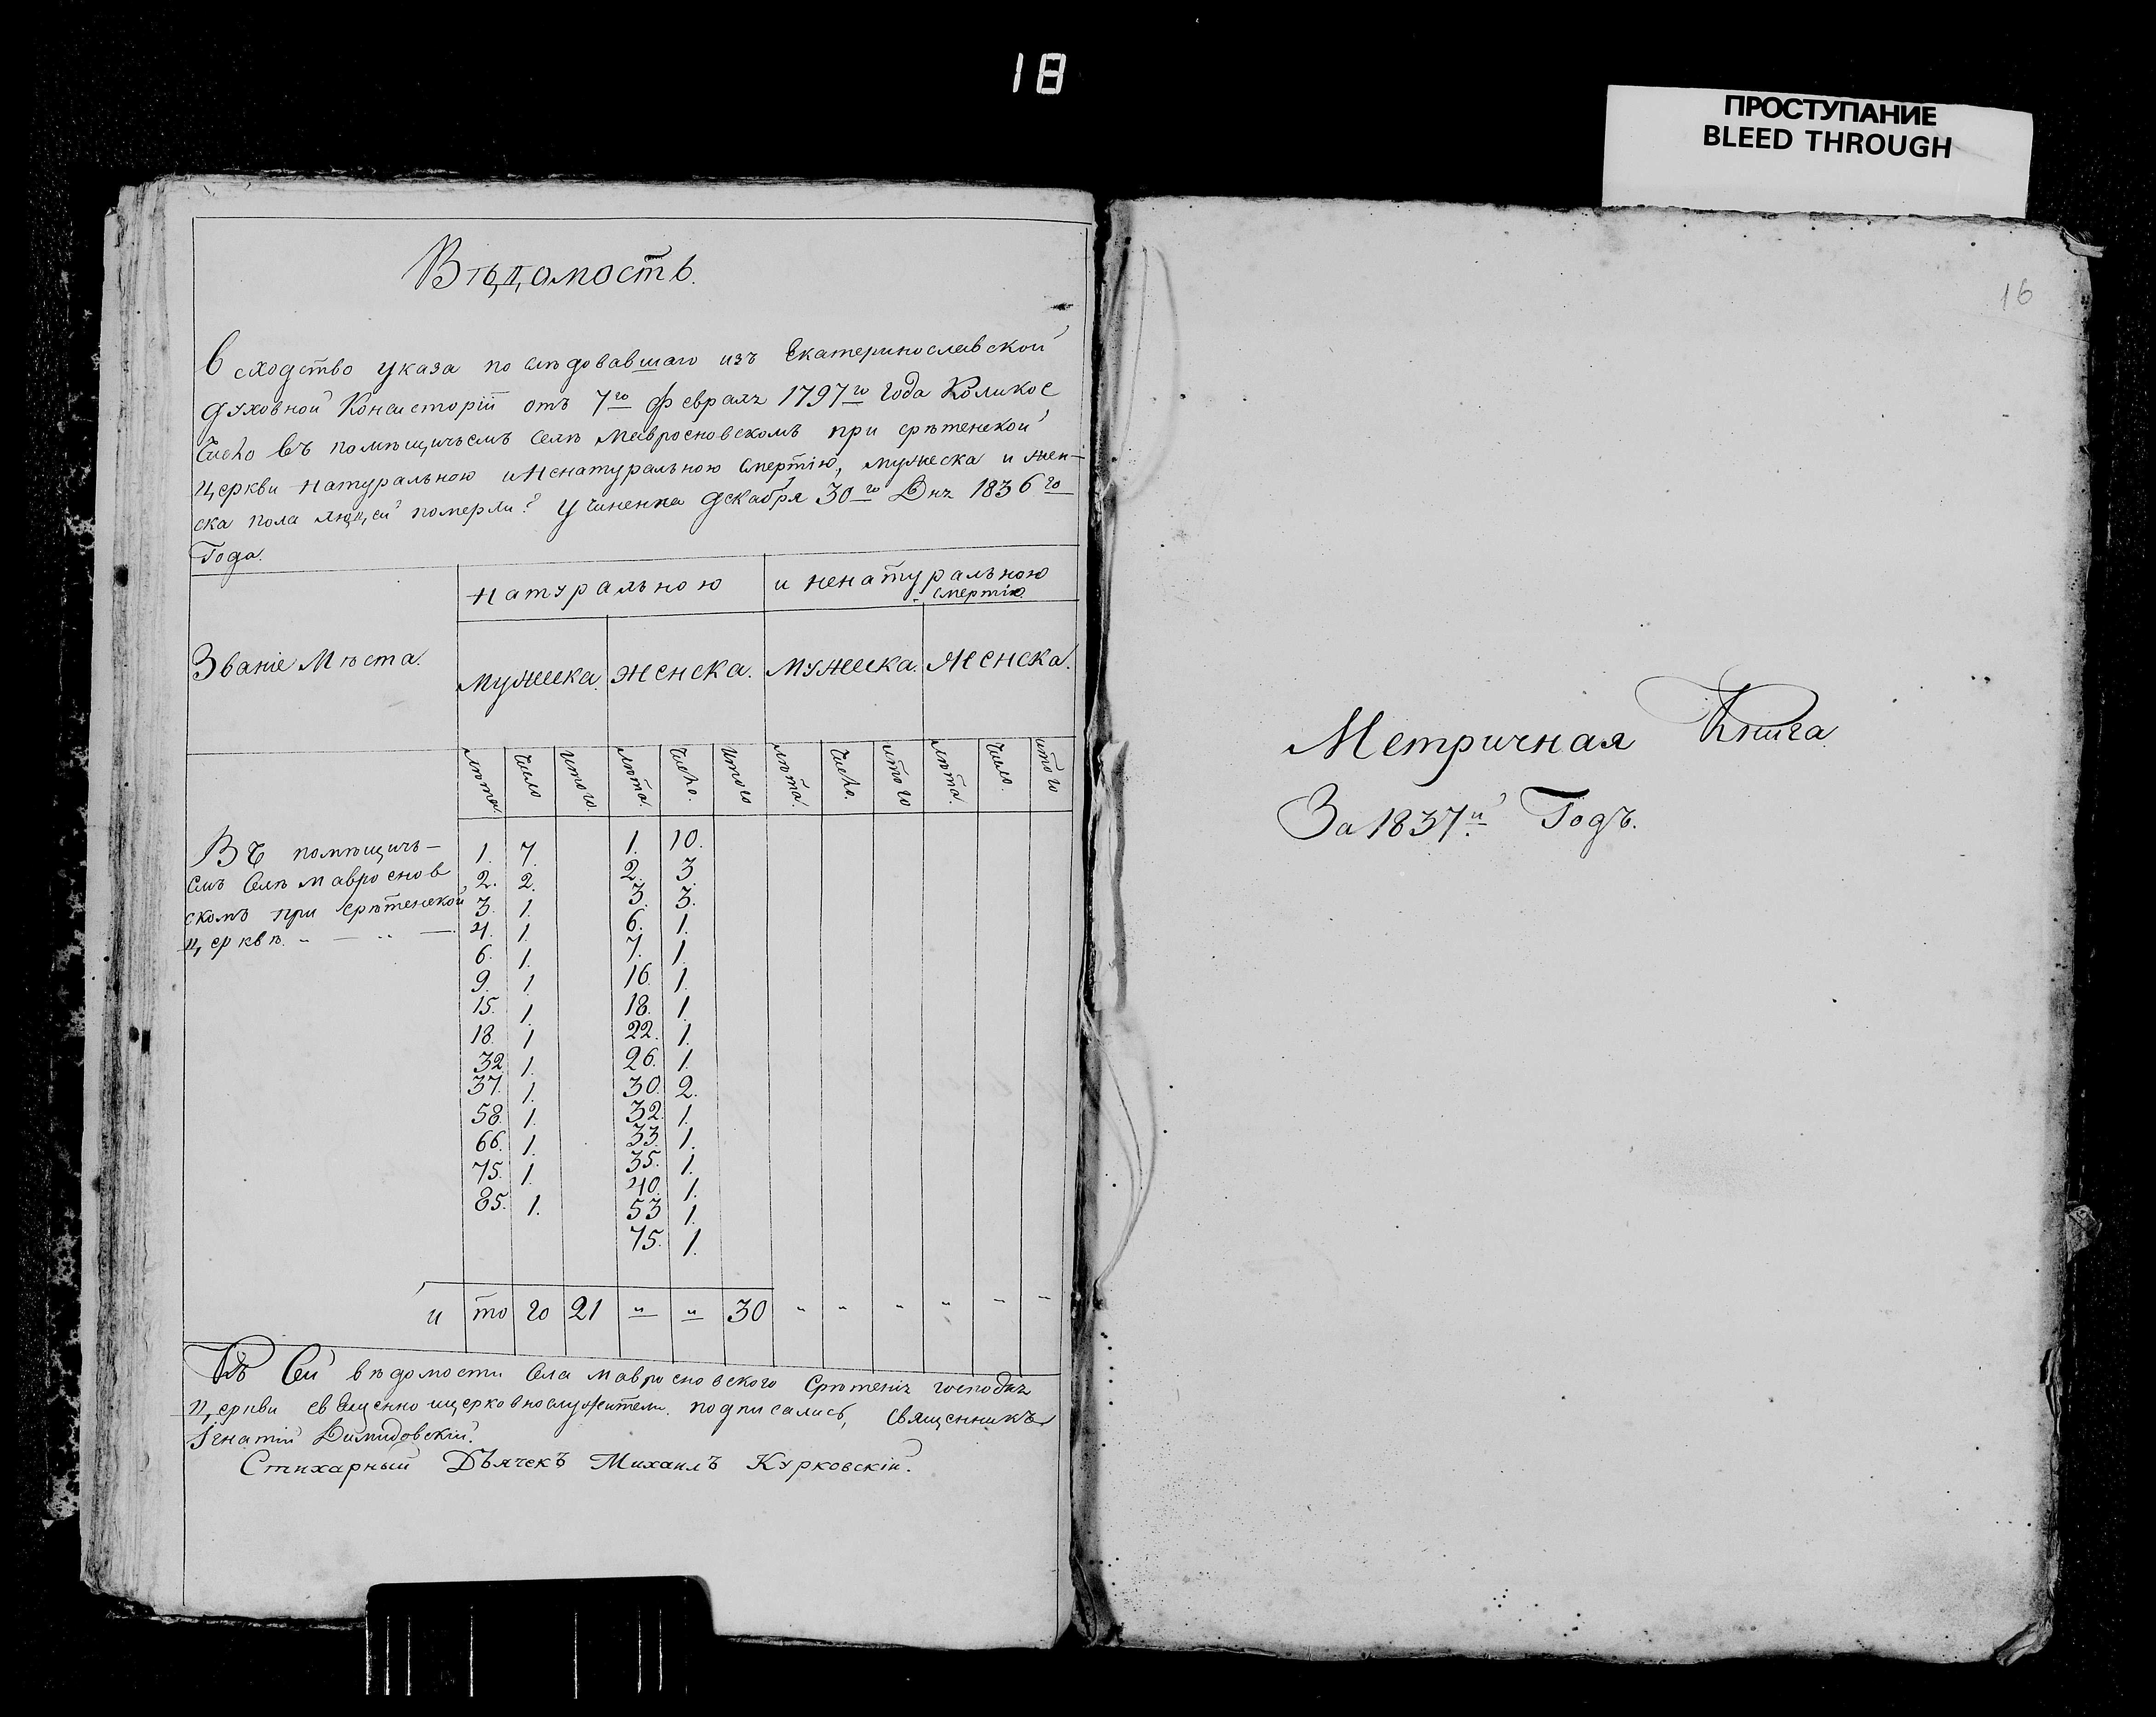 18
ПРОСТУПАНИЕ
BLEED THROUGH
16
Вѣдомость.
в сходство указа послѣдовавшаго изъ Екатеринославской
духовной Консисторіи отъ 7го февраля 1797го года Коликое
Число въ помѣщичьемъ селѣ Мавроеновскомъ при срѣтенской
церкви натуральною и ненатуральною смертію, мужеска и жен-
ска пола людей померли? учиненна декабря 30го Дня 1836го
Года.
Званіе Мѣста. натуральною и ненатуральною смертію
мужеска. женска. мужеска. женска.
лѣта. число итого. лѣта. число. итого лѣта. число. итого лѣта. число. итого
Въ помѣщичь- 1. 7. 1. 10.
емъ селѣ мавроенов 2. 2. 2. 3.
скомъ при срѣтенской 3. 1. 3. 3.
церквѣ. 4. 1. 6. 1.
6. 1. 7. 1.
9. 1 16. 1.
15. 1. 18. 1.
18. 1 22. 1.
32. 1. 26. 1.
37. 1. 30. 2.
58. 1. 32. 1.
66. 1. 33. 1.
75. 1. 35. 1.
85. 1. 40. 1.
53 1.
75. 1.
и то го 21 " " 30 " " " " " "
Къ Сей вѣдомости села мавроеновского Срѣтенія господня
церкви священно ицерковнослужители подписались, священникъ
Ігнатій
Стихарный Дьячекъ Михаилъ Курковскій.
Метричная Книга
За 1837й Годъ.